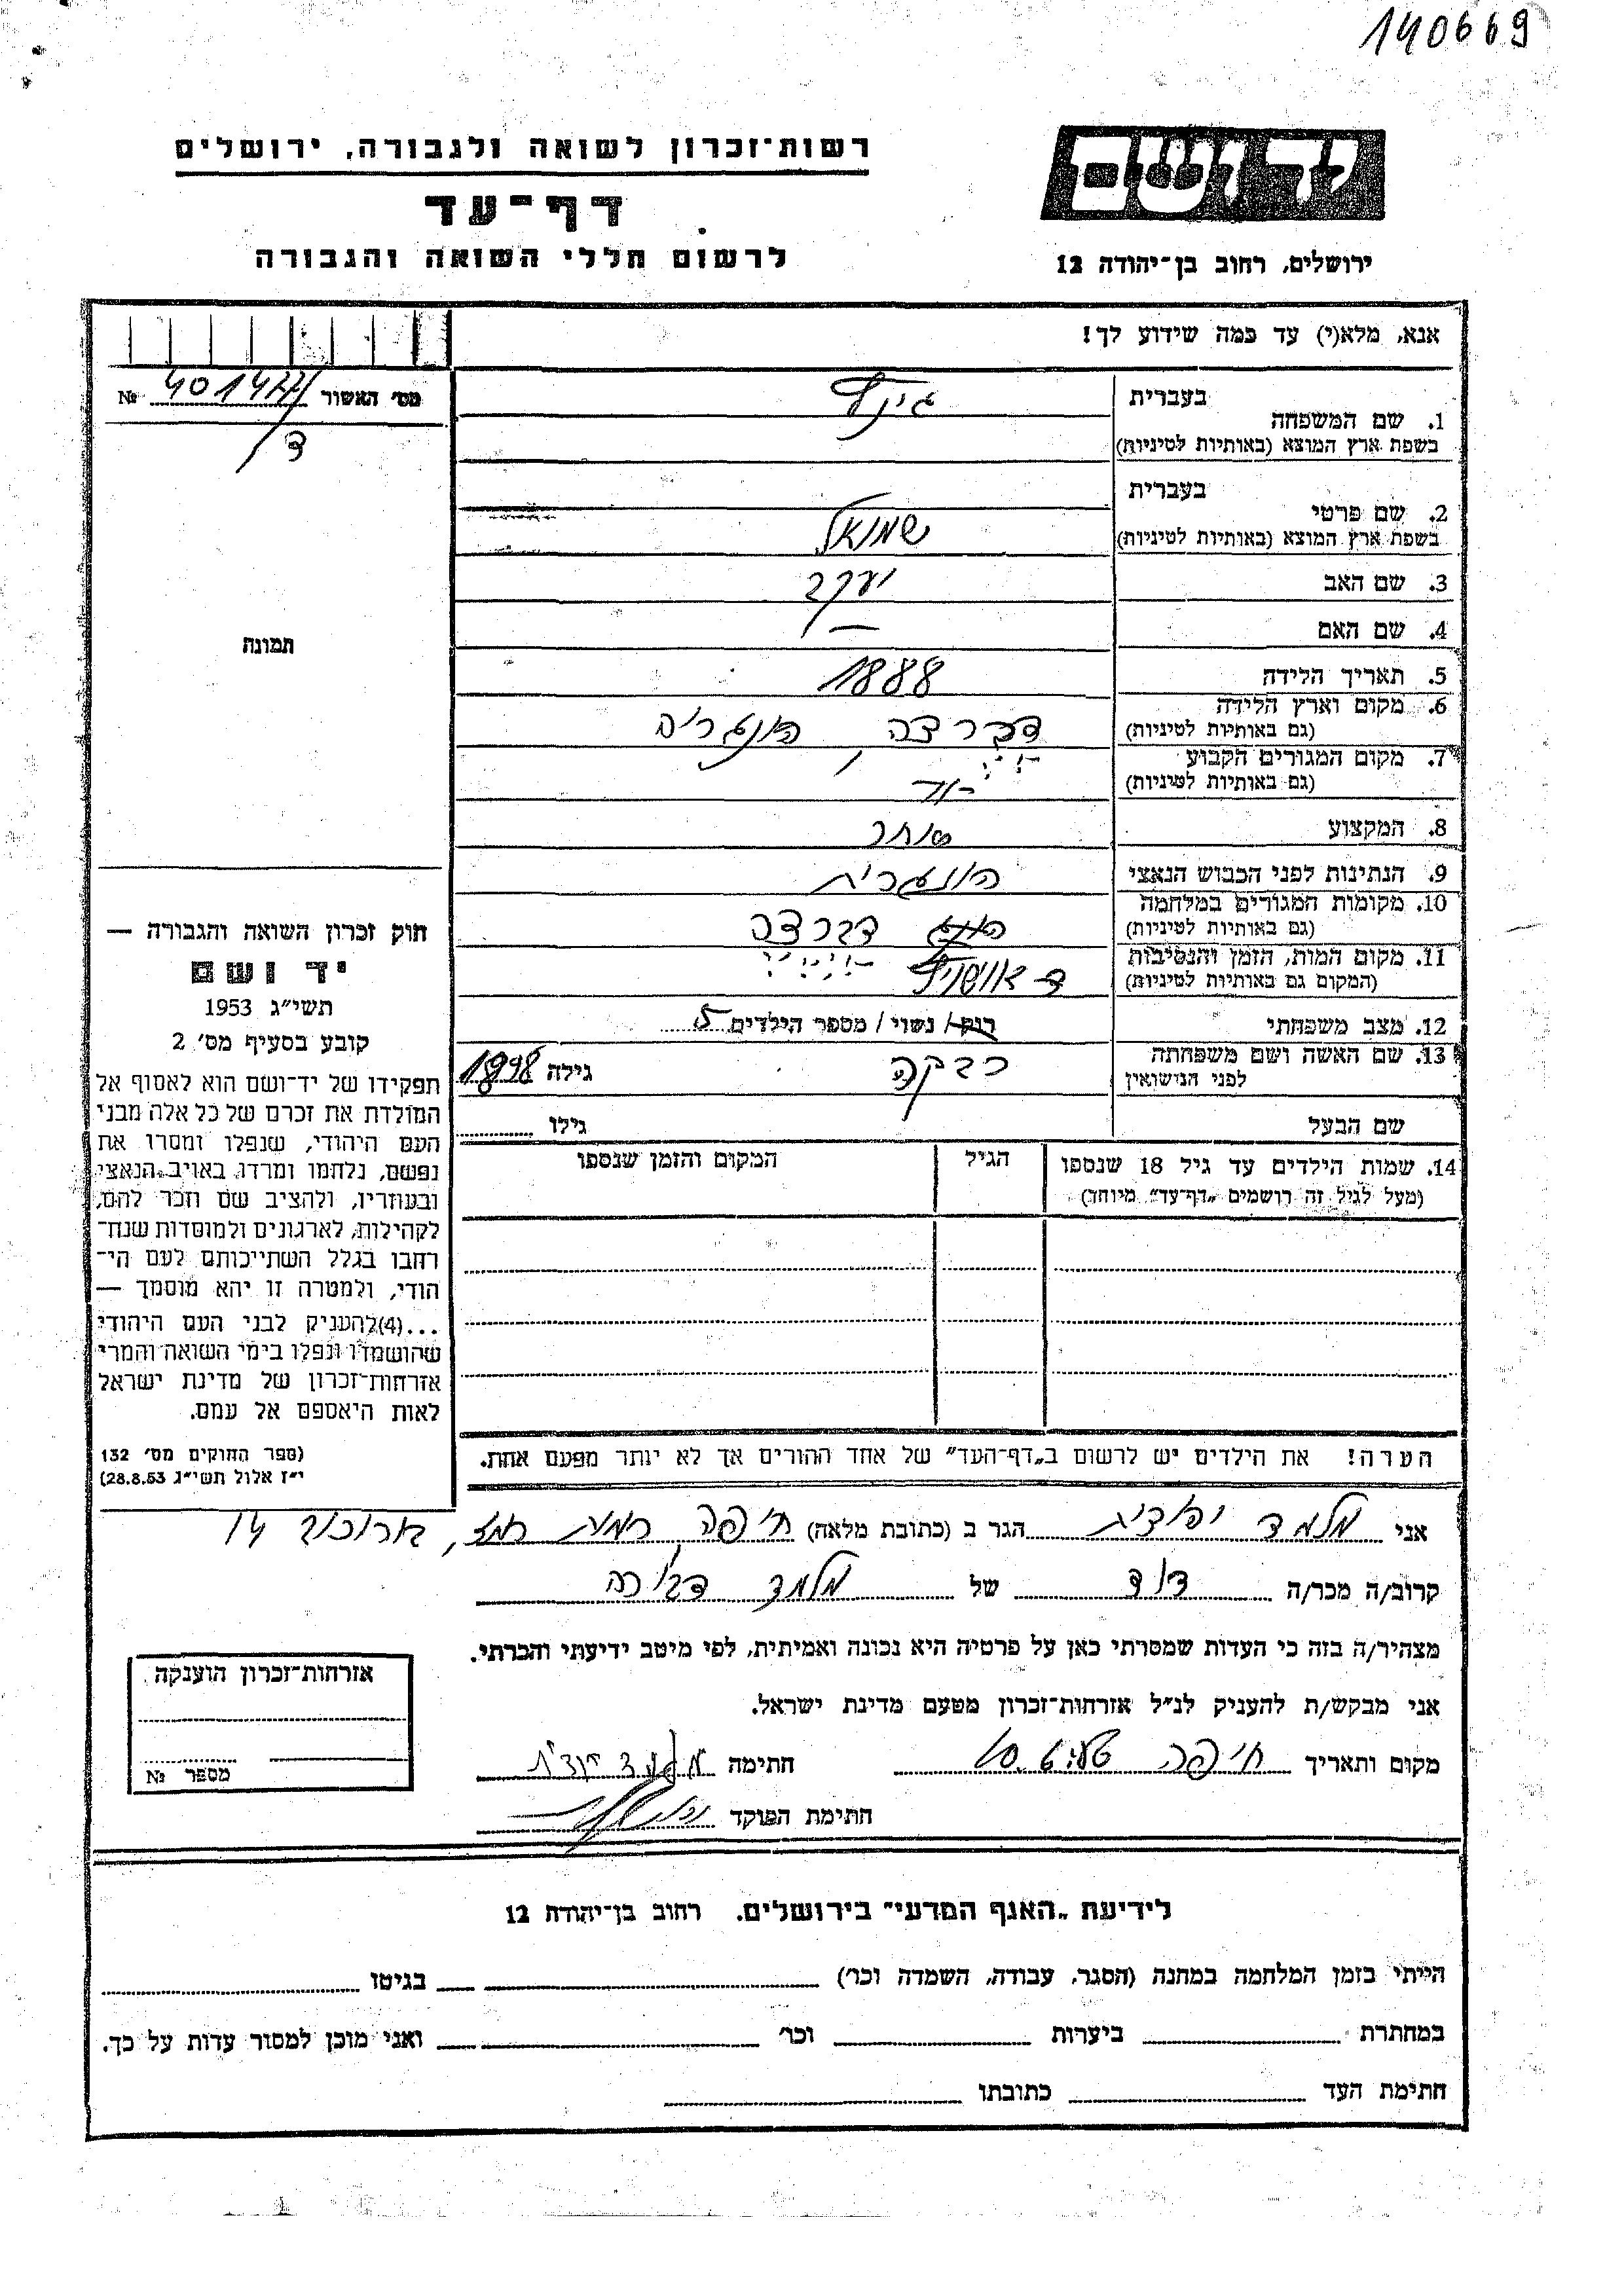 140669
רשות־זכרון לשואה ולגבורה, ירושלים
יד ושם
דף־עד
לרשום חללי השואה והגבורה
ירושלים, רחוב בן־יהודה 12
אנא, מלא(י) עד כמה שידוע לך!
מס׳ האשור № 401477/
ד/
תמונה
חוק זכרון השואה והגבורה —
יד ושם
תשי״ג 1953
קובע בסעיף מס׳ 2
תפקידו של יד־ושם הוא לאסוף אל
המולדת את זכרם של כל אלה מבני
העם היהודי, שנפלו ומסרו את
נפשם, נלחמו ומרדו באויב הנאצי
ובעוזריו, ולהציב שם וזכר להם,
לקהילות, לארגונים ולמוסדות שנח־
רבו בגלל השתייכותם לעם הי־
הודי, ולמטרה זו יהא מוסמך —
...(4) להעניק לבני העם היהודי
שהושמדו ונפלו בימי השואה והמרי
אזרחות־זכרון של מדינת ישראל
לאות היאספם אל עמם.
(ספר החוקים מס׳ 132
י״ז אלול תשי״ג 28.8.53)
1. שם המשפחה
בעברית
בשפת ארץ המוצא (באותיות לטיניות)
2. שם פרטי
בעברית
בשפת ארץ המוצא (באותיות לטיניות) שמואל
3. שם האב יעקב
4. שם האם —
5. תאריך הלידה 1888
6. מקום וארץ הלידה דברצה הונגריה
(גם באותיות לטיניות)
7. מקום המגורים הקבוע
(גם באותיות לטיניות) -״-
8. המקצוע סוחר
9. הנתינות לפני הכבוש הנאצי הונגרית
10. מקומות המגורים במלחמה הונג דברצה
(גם באותיות לטיניות)
11. מקום המות, הזמן והנסיבות
(המקום גם באותיות לטיניות) אושויץ
12. מצב משפחתי רוק / נשוי / מספר הילדים 5
13. שם האשה ושם משפחתה רבקה גילה 1898
לפני הנישואין
שם הבעל גילו
14. שמות הילדים עד גיל 18 שנספו הגיל המקום והזמן שנספו
(מעל לגיל זה רושמים „דף־עד״ מיוחד)
הערה! את הילדים יש לרשום ב„דף־העד״ של אחד ההורים אך לא יותר מפעם אחת.
אני מלמד יהודית הגר ב (כתובת מלאה) חיפה רמת רמז, 14
קרוב/ה מכר/ה דוד של מלמד דבורה
מצהיר/ה בזה כי העדות שמסרתי כאן על פרטיה היא נכונה ואמיתית, לפי מיטב ידיעתי והכרתי.
אני מבקש/ת להעניק לנ״ל אזרחות־זכרון מטעם מדינת ישראל.
מקום ותאריך חיפה חתימה
חתימת הפוקד
אזרחות־זכרון הוענקה
מספר №
לידיעת „האגף המדעי״ בירושלים. רחוב בן־יהודה 12
הייתי בזמן המלחמה במחנה (הסגר, עבודה, השמדה וכו׳) בגיטו
במחתרת ביערות וכו׳ ואני מוכן למסור עדות על כך.
חתימת העד כתובתו